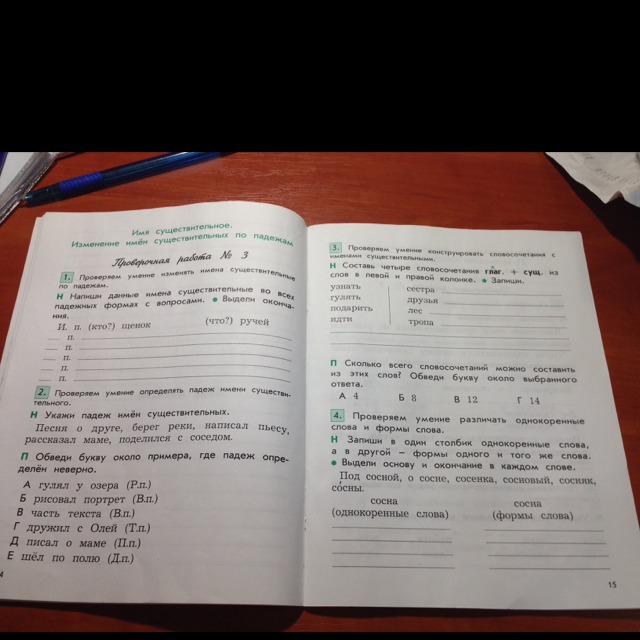 Имя существительное.
Изменение имён существительных по падежам
Проверочная работа № 3
1. Проверяем умение изменять имена существительные
по падежам.
Н Напиши данные имена существительные во всех
падежных формах с вопросами. • Выдели оконча-
ния.
И. п. (кто?) щенок (что?) ручей
п.
п.
п.
п.
п.
2. Проверяем умение определять падеж имени существи-
тельного.
Н Укажи падеж имён существительных.
Песня о друге, берег реки, написал пьесу,
рассказал маме, поделился с соседом.
П Обведи букву около примера, где падеж опре-
делён неверно.
А гулял у озера (Р.п.)
Б рисовал портрет (В.п.)
В часть текста (В.п.)
Г дружил с Олей (Т.п.)
Д писал о маме (П.п.)
Е шёл по полю (Д.п.)
4
3. Проверяем умение конструировать словосочетания с
именами существительными.
Н Составь четыре словосочетания глаг. + сущ. из
слов в левой и правой колонке. • Запиши.
узнать сестра
гулять друзья
подарить лес
идти тропа
П Сколько всего словосочетаний можно составить
из этих слов? Обведи букву около выбранного
ответа.
А 4 Б 8 В 12 Г 14
4. Проверяем умение различать однокоренные
слова и формы слова.
Н Запиши в один столбик однокоренные слова,
а в другой – формы одного и того же слова.
• Выдели основу и окончание в каждом слове.
Под сосной, о сосне, сосенка, сосновый, сосняк,
со́сны.
сосна сосна
(однокоренные слова) (формы слова)
15